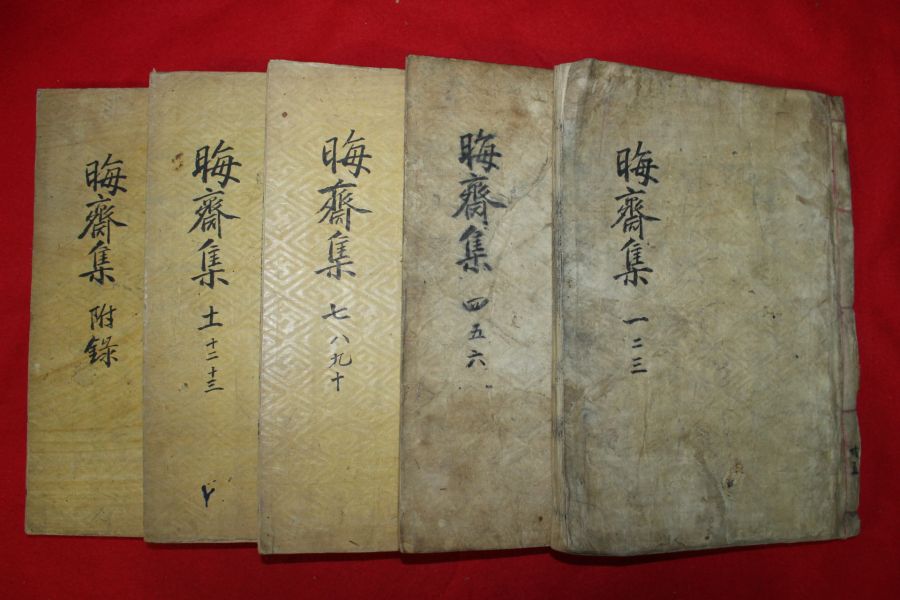 晦齋集 一二三
晦齋集 四五六
晦齋集 七八九十
晦齋集 十一 十二 十三
晦齋集 附錄